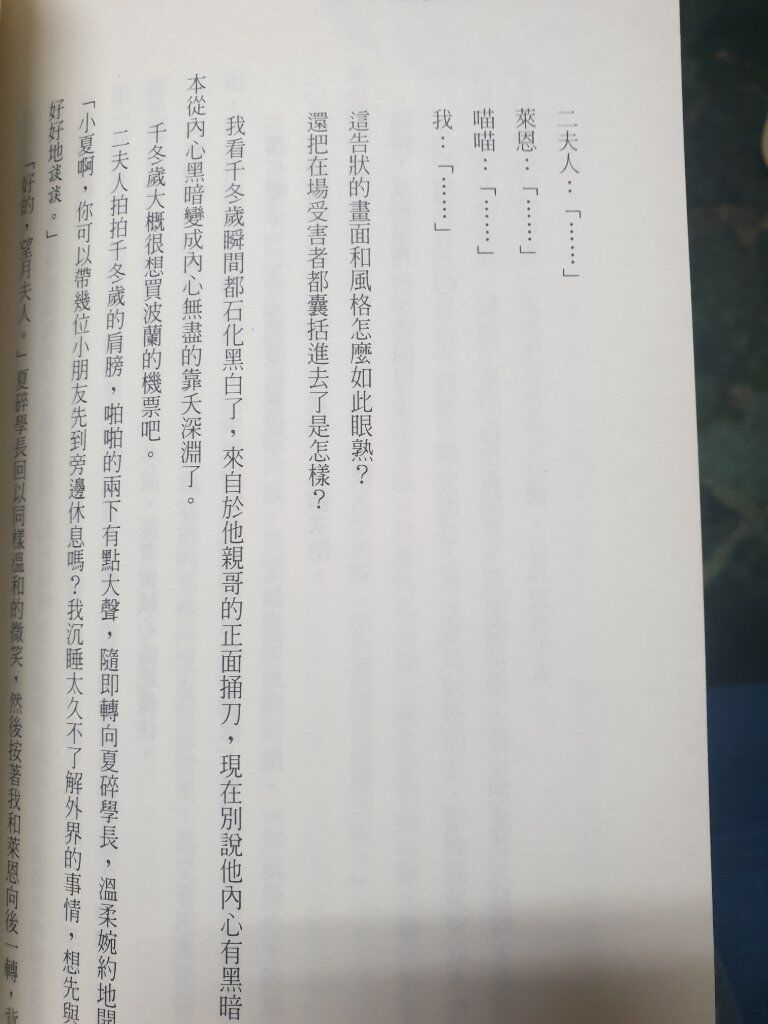 二夫人：「……」
萊恩：「……」
喵喵：「……」
我：「……」
這告狀的畫面和風格怎麼如此眼熟？
還把在場受害者都囊括進去了是怎樣？
我看千冬歲瞬間都石化黑白了，來自於他親哥的正面捅刀，現在別說他內心有黑暗
本從內心黑暗變成內心無盡的靠夭深淵了。
千冬歲大概很想買波蘭的機票吧。
二夫人拍拍千冬歲的肩膀，啪啪的兩下有點大聲，隨即轉向夏碎學長，溫柔婉約地開
「小夏啊，你可以帶幾位小朋友先到旁邊休息嗎？我沉睡太久不了解外界的事情，想先與
好好地談談。」
「好的，望月夫人。」夏碎學長回以同樣溫和的微笑，然後按著我和萊恩向後一轉，